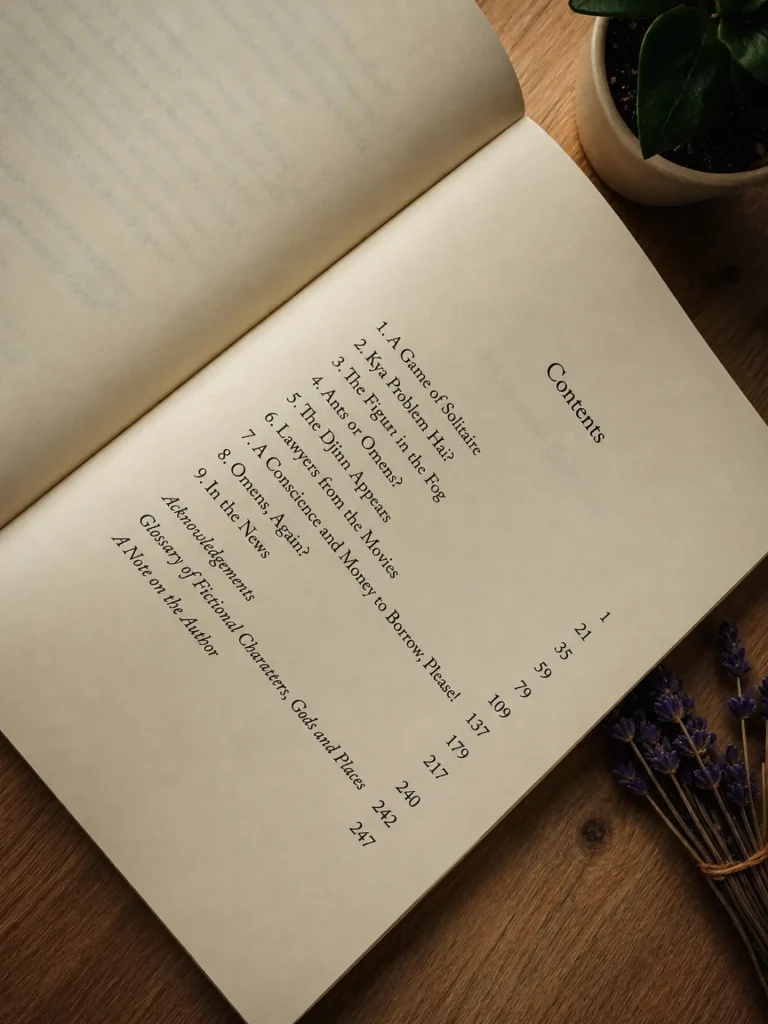 Contents
1. A Game of Solitaire 1
2. Kya Problem Hai? 21
3. The Figure in the Fog 35
4. Ants or Omens? 59
5. The Djinn Appears 79
6. Lawyers from the Movies 109
7. A Conscience and Money to Borrow, Please! 137
8. Omens, Again? 179
9. In the News 217
Acknowledgements 240
Glossary of Fictional Characters, Gods and Places 242
A Note on the Author 247